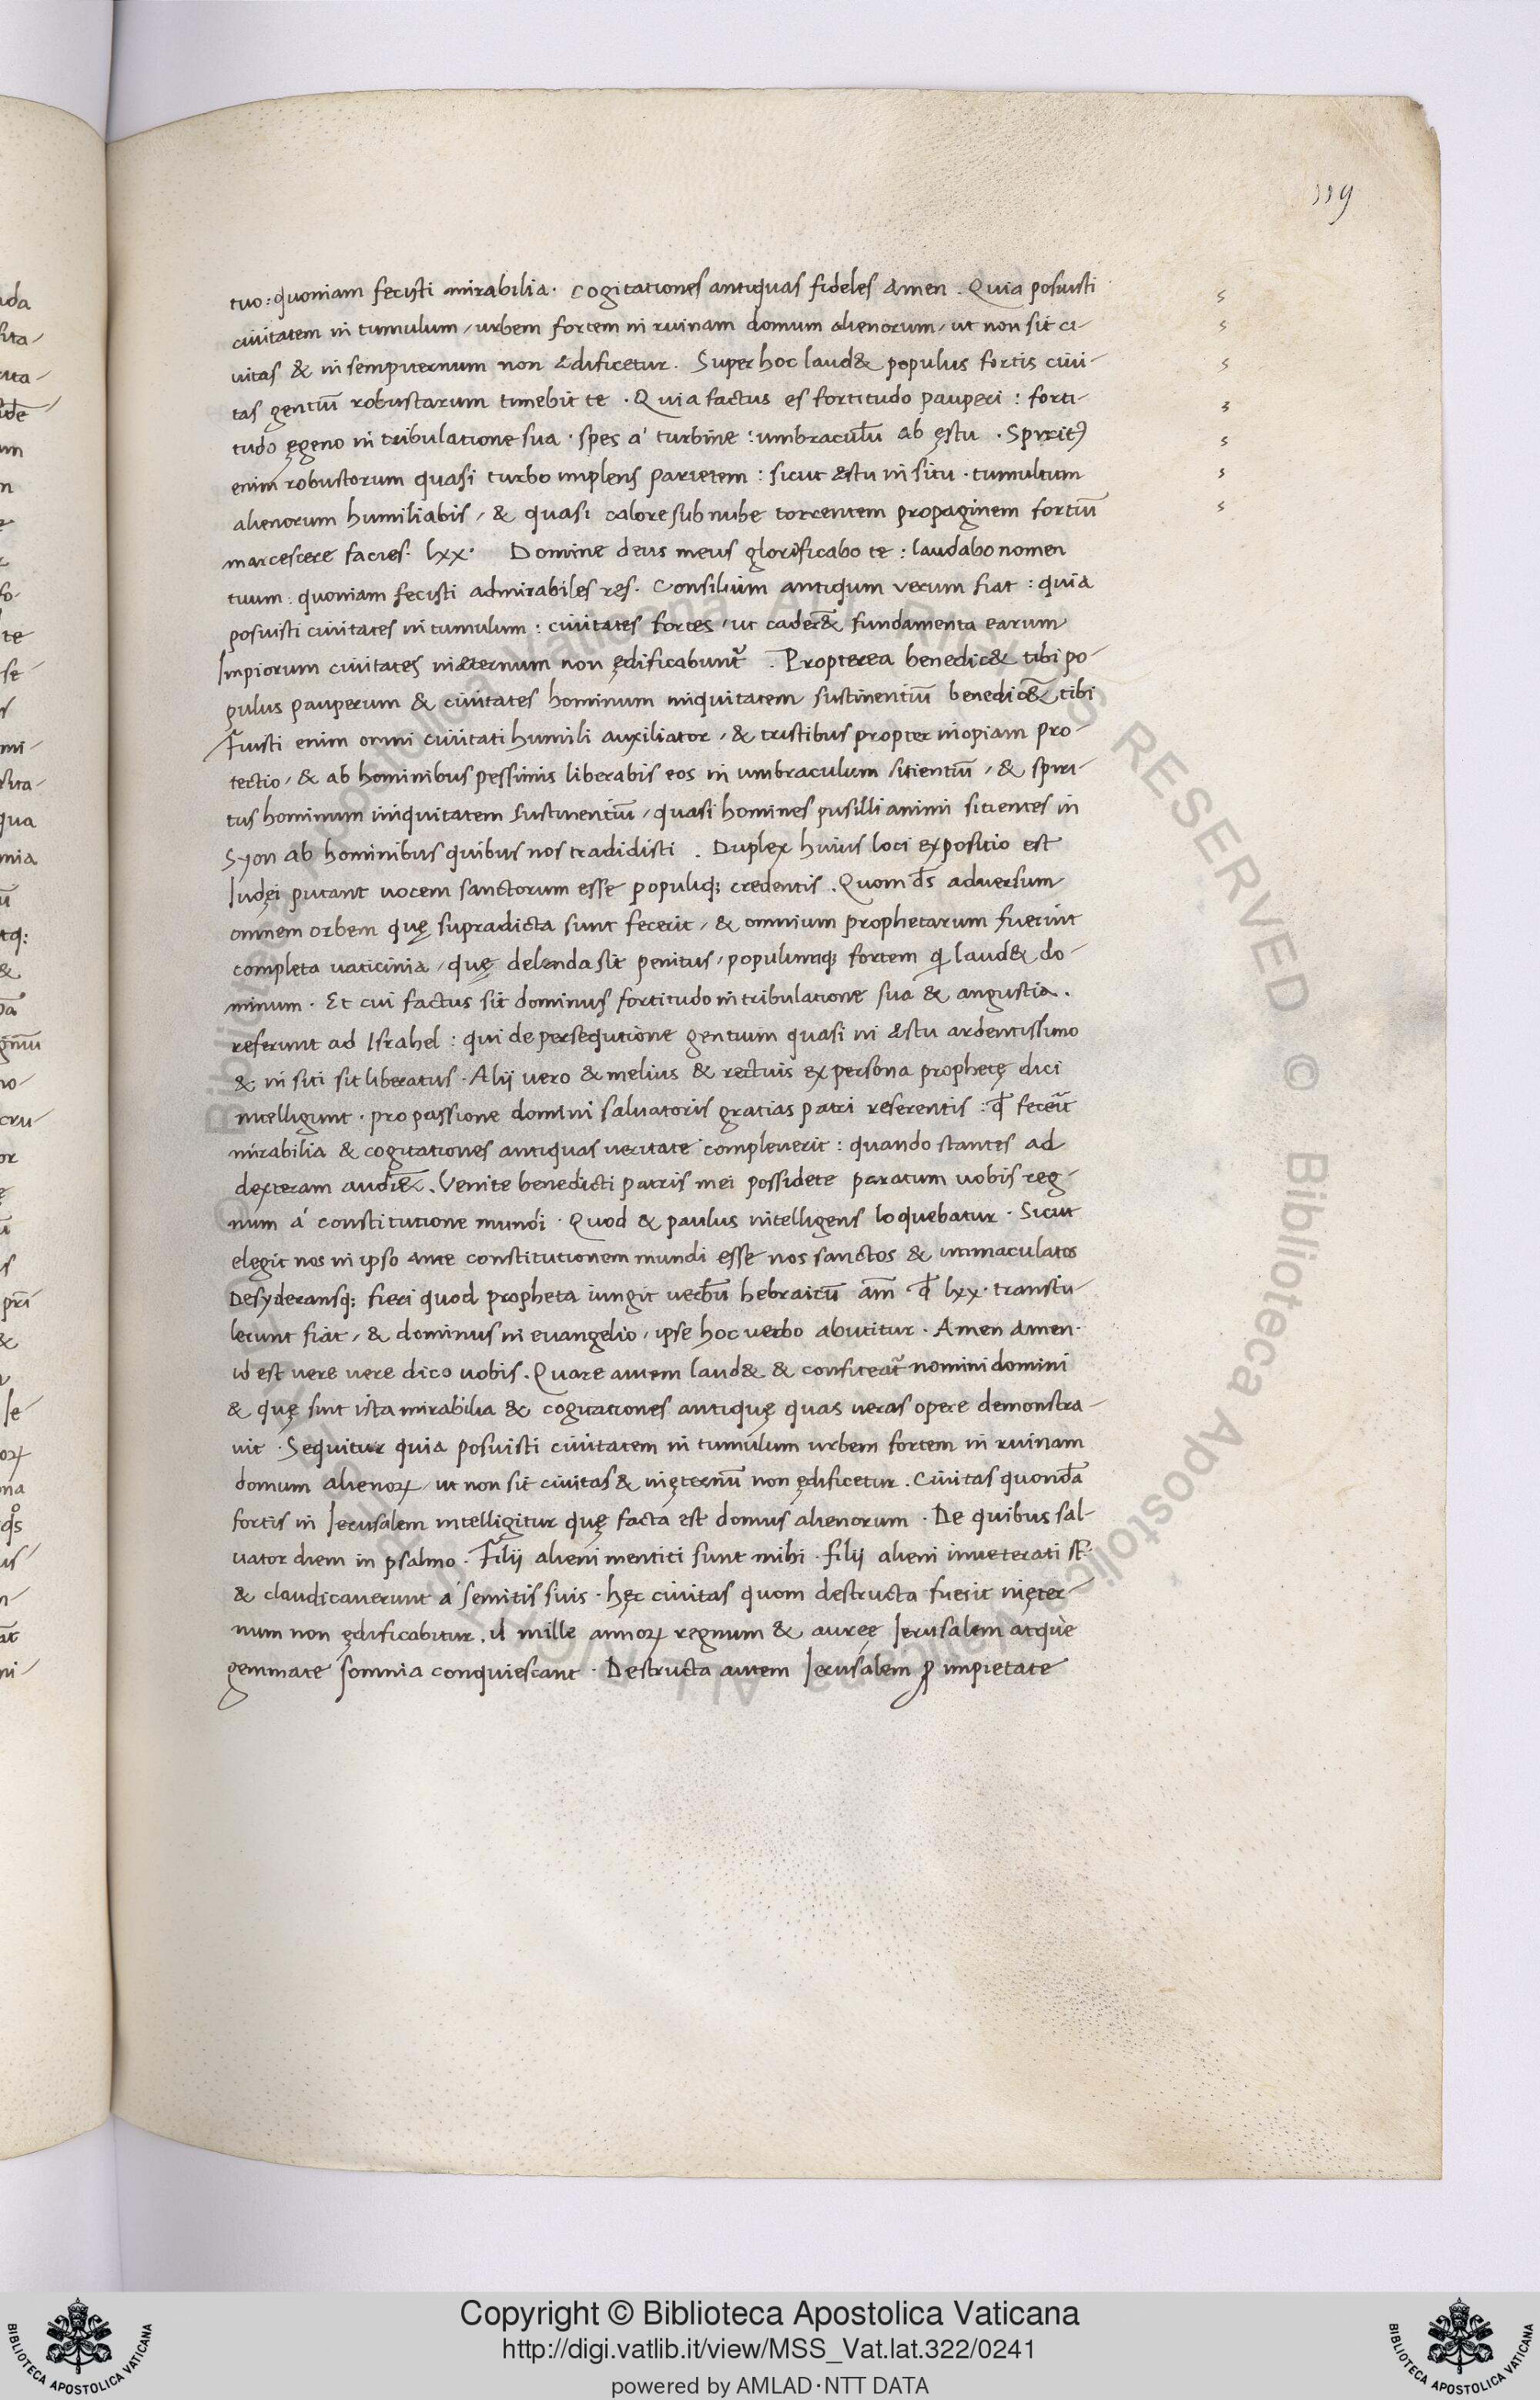 119
tuo: quoniam fecisti mirabilia. Cogitationes antiquas fideles amen. Quia posuisti
ciuitatem in tumulum, urbem fortem in ruinam domum alienorum, ut non sit ci-
uitas & in sempiternum non ædificetur. Super hoc laud& populus fortis ciui-
tas gentiū robustarum timebit te. Quia factus es fortitudo pauperi: forti-
tudo ęgeno in tribulatione sua. spes a' turbine: umbraculū ab ęstu. Spirit9
enim robustorum quasi turbo implens parietem: sicut æstu in situ. tumultum
alienorum humiliabis, & quasi calore sub nube torrentem propaginem fortiū
marcescere facies. lxx. Domine deus meus glorificabo te: laudabo nomen
tuum: quoniam fecisti admirabiles res. Consilium antiqum verum fiat: quia
posuisti ciuitates in tumulum: ciuitates fortes, ut cader& fundamenta earum
Impiorum ciuitates inæternum non ędificabunt̃. Propterea benedic& tibi po-
pulus pauperum & ciuitates hominum iniquitatem sustinentiū benedic&̄ tibi
Fuisti enim omni ciuitati humili auxiliator, & tristibus propter inopiam pro-
tectio, & ab hominibus pessimis liberabis eos in umbraculum sitientiū, & spiri-
tus hominum iniquitatem sustinentiū, quasi homines pusilli animi sitientes in
Syon ab hominibus quibus nos tradidisti. Duplex huius loci expositio est
Iudęi putant uocem sanctorum esse populiq; credentis. Quom d̄s adversum
omnem orbem quę supradicta sunt fecerit, & omnium prophetarum fuerint
completa uaticinia, quę delenda sit penitus, populumq; fortem q̇ laud& do-
minum. Et cui factus sit dominus fortitudo in tribulatione sua & angustia.
referunt ad Israhel: qui de persequtione gentium quasi in æstu ardentissimo
& in siti sit liberatus. Alij vero & melius & rectius ex persona prophetę dici
intelligunt. pro passione domini saluatoris gratias patri referentis: qđ fecerit
mirabilia & cogitationes antiquas ueritate compleuerit: quando stantes ad
dexteram audi&̄. Venite benedicti patris mei possidete paratum uobis reg-
num á constitutione mundi. Quod & paulus intelligens loquebatur. Sicut
elegit nos in ipso ante constitutionem mundi esse nos sanctos & immaculatos
Desyderansq; fieri quod propheta iungit uerbū hebraicū am̄ qđ lxx. transtu-
lerunt fiat, & dominus in euangelio, ipse hoc uerbo abutitur. Amen amen.
id est uere uere dico uobis. Quare autem laud& & confiteat̃ nomini domini
& quę sint ista mirabilia & cogitationes antiquę quas ueras opere demonstra-
uit. Sequitur quia posuisti ciuitatem in tumulum urbem fortem in ruinam
domum alienoꝝ, ut non sit ciuitas & inęternū non ędificetur. Ciuitas quondā
fortis in Ierusalem intelligitur quę facta est domus alienorum. De quibus sal-
uator diem in psalmo. Filij alieni mentiti sunt mihi. filij alieni inueterati st̄.
& claudicauerunt a' semitis suis. hęc ciuitas quom destructa fuerit inęter-
num non ędificabitur. il mille annoꝝ regnum & aureę Ierusalem atque
gemmate somnia conquiescant. Destructa autem Ierusalem ꝓ impietate
Copyright © Biblioteca Apostolica Vaticana
http://digi.vatlib.it/view/MSS_Vat.lat.322/0241
powered by AMLAD·NTT DATA